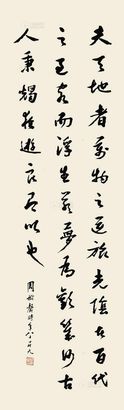 夫天地者萬物之逆旅光陰者百代
之過客而浮生若夢為歡幾何古
人秉燭夜遊良有以也
時年八十九